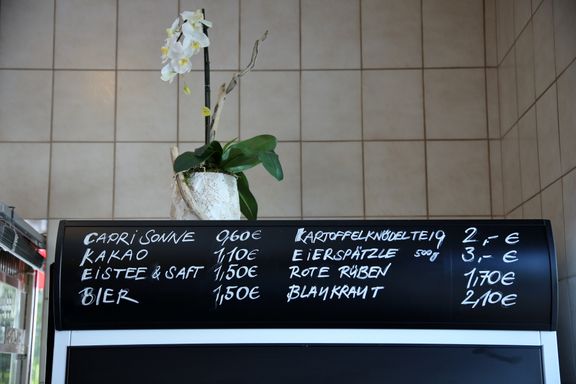 CAPRI SONNE 0,60 €
KAKAO 1,10 €
EISTEE & SAFT 1,50 €
BIER 1,50 €
KARTOFFELKNÖDELTEIG 2,- €
EIERSPÄTZLE 500g 3,- €
ROTE RÜBEN 1,70 €
BLAUKRAUT 2,10 €